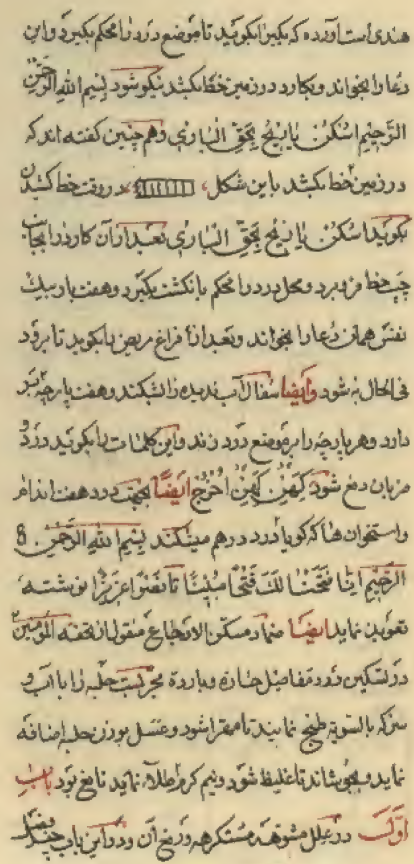 هندی است آورده که بکیر را بکوئید تا موضع درد را محکم بکیرد و این
دعا را بخواند و بکارد در زمین خط بکشد نیکو شود بسم الله الرحمن
الرحیم اسکن یا ریح بحق الباری و هم چنین کفته اند که
در زمین خط بکشد باین شکل در وقت خط کشیدن
بکوید اسکن یا ریح بحق الباری بعد از آن کارد را بجانب
چپ خط فرو برد و محل درد را محکم بانکشت بکیرد و هفت بار بیک
نفس همان دعا را بخواند و بعد از فراغ مریض را بکوید تا برود
فی الحال به شود وایضا سفال آب ندیده را بشکند و هفت پارچه بر
دارد و هر پارچه را بر موضع درد زند و این کلمات را بکوئید درد
مزبان دفع شود کهن کهن اخرج ایضا بجهت درد هفت اندام
و استخوان ها که کویا درد درهم میشکند بسم الله الرحمن
الرحیم انا فتحنا لک فتحا مبینا تا نصرا عزیزا نوشته
تعویذ نماید ایضا ضماد مسکن الاوجاع منقول از تحفه المؤمنین
در تسکین درد مفاصل حاره و بارده مجربست حلبه را با آب و
سرکه بالسویه طبخ نمایند تا مهرا شود و عسل بوزن حلبه اضافه
نماید و بجوشاند تا غلیظ شود و نیم کرم طلا نماید نافع بود باب
اول در علل مشوهه مستکرهه و رفع آن و در این باب چند فصلست